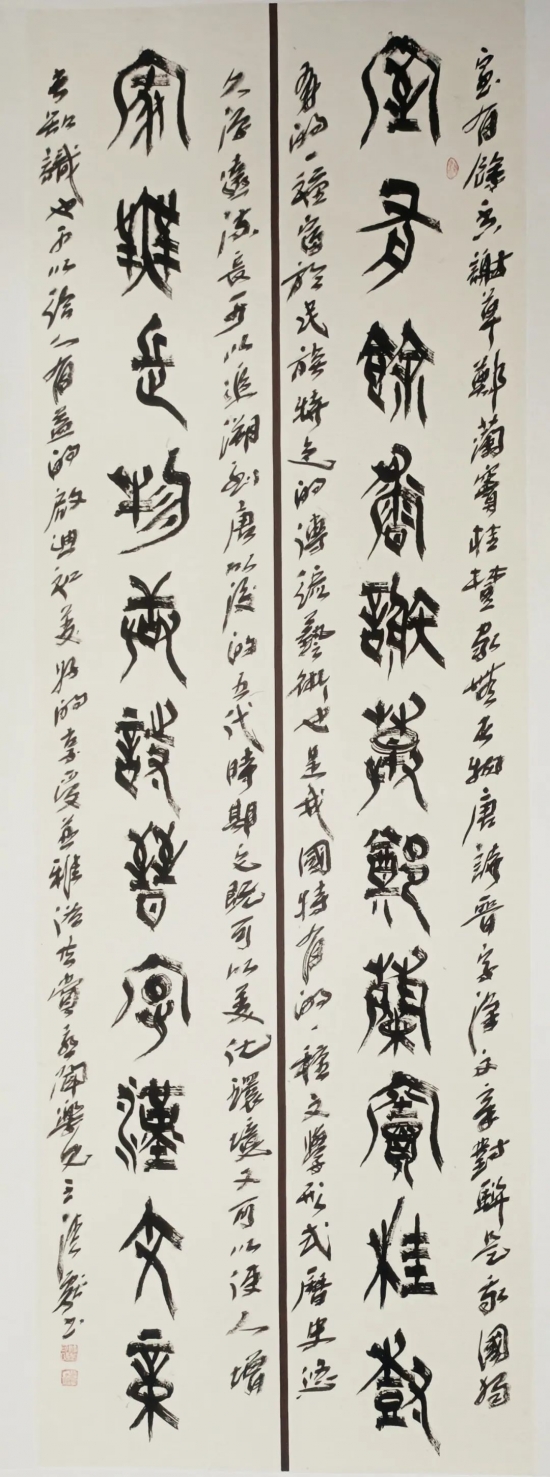 室有餘香謝草鄭蘭竇桂樹家無長物唐詩晉字漢文章對聯是我國獨
室有餘香謝草鄭蘭竇桂樹
有的一種富於民族特色的傳統藝術也是我國特有的一種文學形式歷史悠
久源遠流長可以追溯到唐以後的五代時期它既可以美化環境又可以使人增
家無長物唐詩晉字漢文章
長知識也可以給人有益的啟迪和美好的享受並雅俗共賞喜聞樂見